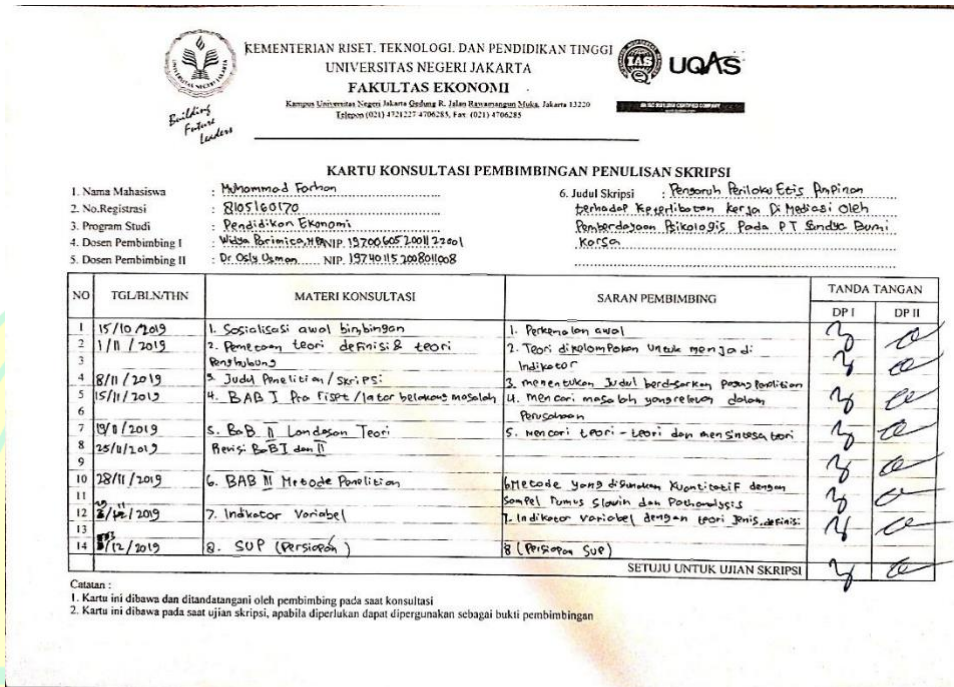 KEMENTERIAN RISET, TEKNOLOGI, DAN PENDIDIKAN TINGGI
UNIVERSITAS NEGERI JAKARTA
FAKULTAS EKONOMI
Kampus Universitas Negeri Jakarta Gedung R, Jalan Rawamangun Muka, Jakarta 13220
Telepon (021) 4721227 4706285, Fax. (021) 4706285
Building
Future
Leaders
IAS
UQAS
KARTU KONSULTASI PEMBIMBINGAN PENULISAN SKRIPSI
1. Nama Mahasiswa : Muhammad Farhan
2. No.Registrasi : 8105160170
3. Program Studi : Pendidikan Ekonomi
4. Dosen Pembimbing I : Widya Parimita, MPA NIP. 19700605 200112 2001
5. Dosen Pembimbing II : Dr Osly Usman NIP. 19740115 2008011008
6. Judul Skripsi : Pengaruh Perilaku Etis Pimpinan
terhadap Keterlibatan kerja Di Mediasi Oleh
Pemberdayaan Psikologis Pada PT Bumi
Karsa
NO TGL/BLN/THN MATERI KONSULTASI SARAN PEMBIMBING TANDA TANGAN
DP I DP II
1 15/10/2019 1. Sosialisasi awal bimbingan 1. Perkenalan awal
2 1/11/2019 2. Pemetaan teori definisi & teori 2. Teori dikelompokan untuk menjadi
3 Penghubung Indikator
4 8/11/2019 3. Judul Penelitian/skripsi 3. menentukan Judul berdasarkan
5 15/11/2019 4. BAB I Pra riset/latar belakang masalah 4. mencari masalah yang relevan dalam
6 Perusahaan
7 19/11/2019 5. BaB II Landasan Teori 5. Mencari teori-teori dan mensintesa teori
8 25/11/2019 Revisi BaB I dan II
9
10 28/11/2019 6. BAB III Metode Penelitian 6 Metode yang digunakan Kuantitatif dengan
11 Sampel Rumus Slovin dan Pathanalysis
12 /2019 7. Indikator Variabel 7. Indikator variabel dengan teori Jenis, definisi
13
14 /12/2019 8. SUP (Persiapan) 8 (Persiapan SUP)
SETUJU UNTUK UJIAN SKRIPSI
Catatan :
1. Kartu ini dibawa dan ditandatangani oleh pembimbing pada saat konsultasi
2. Kartu ini dibawa pada saat ujian skripsi, apabila diperlukan dapat dipergunakan sebagai bukti pembimbingan